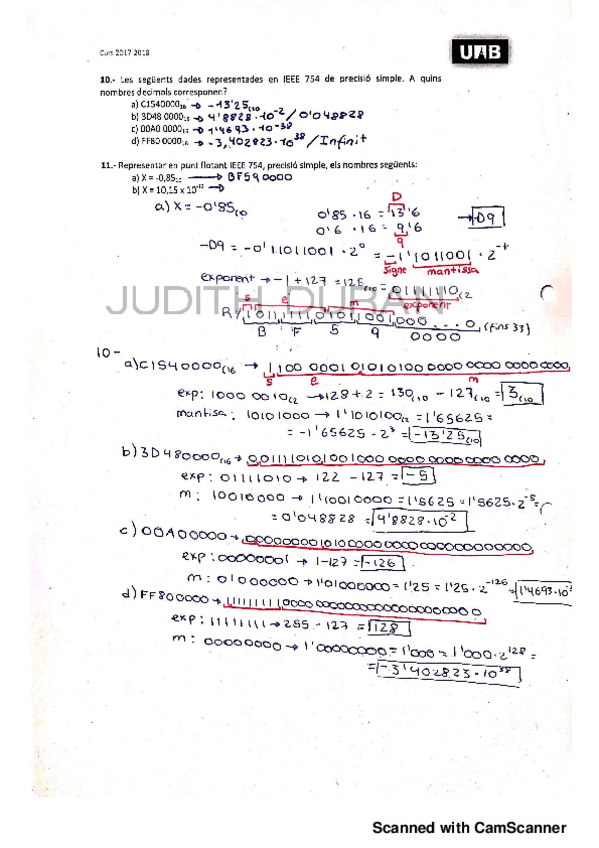 Curs 2017-2018
UAB
10.- Les següents dades representades en IEEE 754 de precisió simple. A quins
nombres decimals corresponen?
a) C1540000₁₆ → -13'25₍₁₀
b) 3D48 0000₁₆ → 4'8828·10⁻² / 0'048828
c) 00A0 0000₁₆ → 1'4693·10⁻³⁸
d) FF80 0000₁₆ → -3,402823·10³⁸ / Infinit
11.- Representar en punt flotant IEEE 754, precisió simple, els nombres següents:
a) X = -0,85₁₀ → BF590000
b) X = 10,15 x 10⁻¹⁰ →
a) X = -0'85₍₁₀
D
0'85 · 16 = 13'6 → -D9
0'6 · 16 = 9'6
9
-D9 = -0'11011001 · 2⁰ = -1'1011001 · 2⁻¹
signe mantissa
exponent → -1 + 127 = 126₍₁₀ = 01111110₍₂
exponent
JUDITH DURAN
s e m
R/ 1011 1111 0101 1001 000 ... 0, (fins 33)
B F 5 9 0000
10-
a) C1540000₍₁₆ → 1100 0001 01010100 0000 0000 0000 0000
s e m
exp: 1000 0010₍₂ → 128+2 = 130₍₁₀ - 127₍₁₀ = 3₍₁₀
mantisa: 10101000 → 1'1010100₍₂ = 1'65625 =
= -1'65625 · 2³ = -13'25₍₁₀
b) 3D480000₍₁₆ → 0011 1101 0100 1000 0000 0000 0000 0000
exp: 01111010 → 122 - 127 = -5
m: 10010000 → 1'10010000 = 1'5625 = 1'5625·2⁻⁵ =
= 0'048828 = 4'8828·10⁻²
c) 00A00000 → 00000000101000000000000000000000
exp: 00000001 → 1-127 = -126
m: 01000000 → 1'01000000 = 1'25 = 1'25 · 2⁻¹²⁶ = 1'4693·10
d) FF800000 → 11111111100000000000000000000000
exp: 11111111 → 255 - 127 = 128
m: 00000000 → 1'00000000 = 1'000 = 1'000·2¹²⁸ =
= -3'402823·10³⁸
Scanned with CamScanner